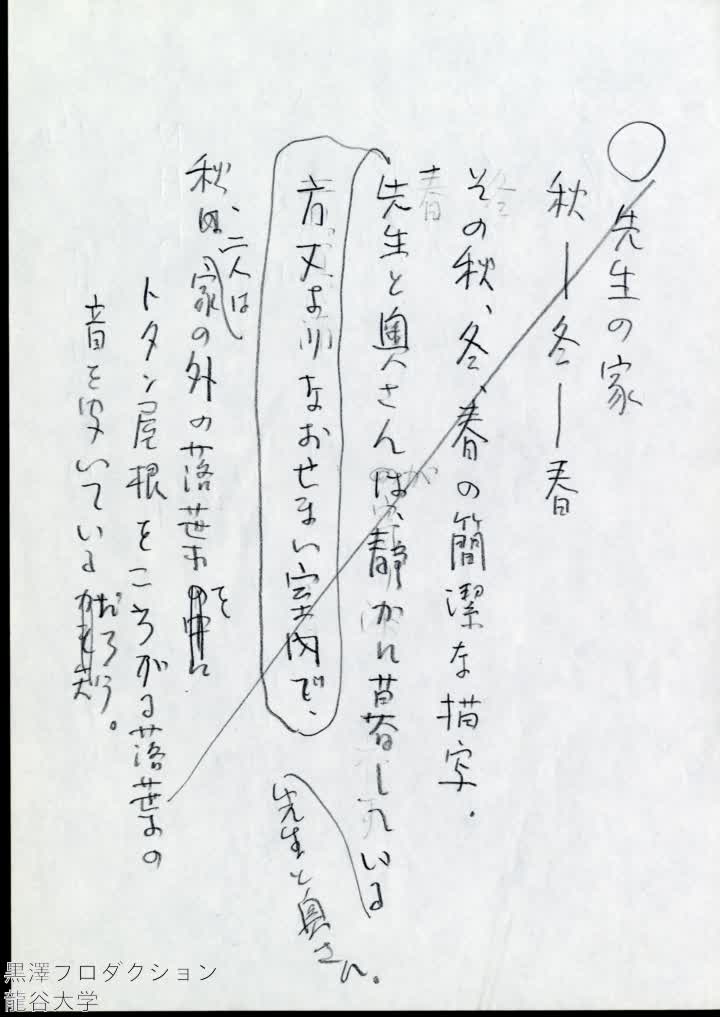 ○先生の家
秋―冬―春
その秋、冬、春の簡潔な描写。
春
先生と奥さんが静かに暮している
方丈よりなおせまい室内で、
先生と奥さん。
秋は、二人は
家の外の落葉を
トタン屋根をころがる落葉の
音を聞いているだろう。
黒澤プロダクション
龍谷大学